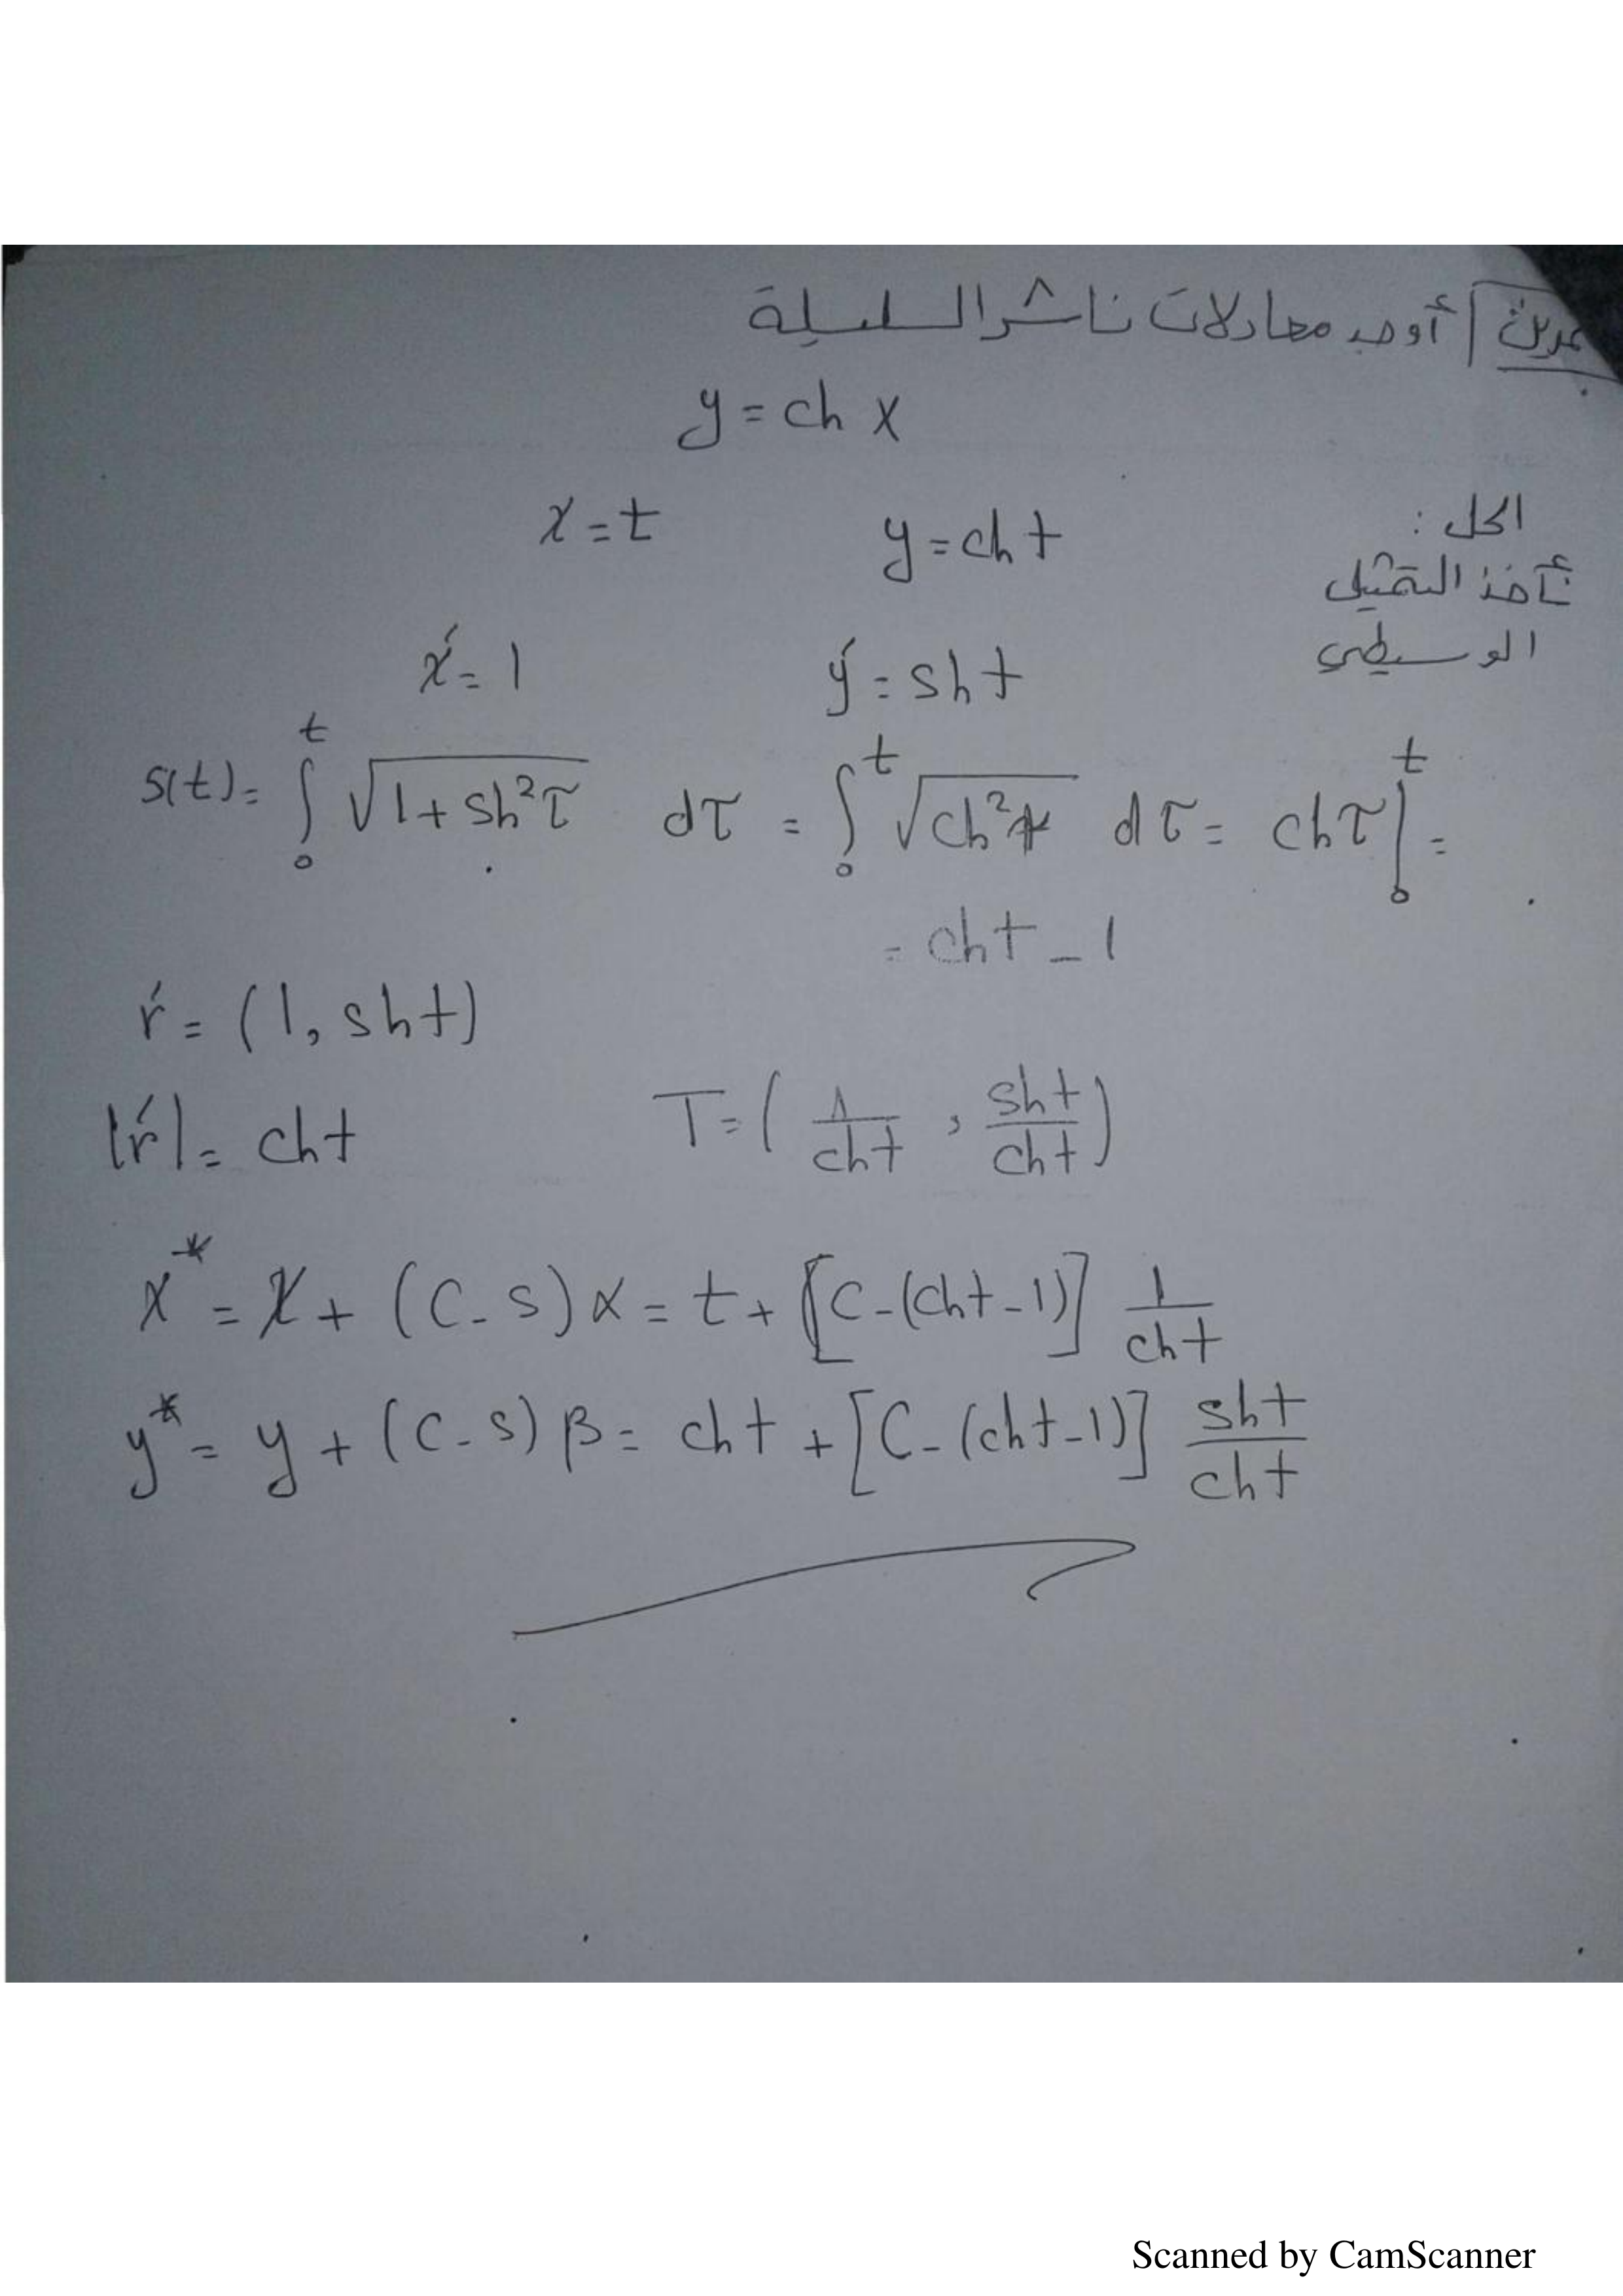 تمرين / أوجد معادلات ناشر السلسلة
y = ch x
الحل :
x = t y = ch t
نأخذ التمثيل
الوسيطي
x́ = 1 ý = sh t
s(t) = ∫₀ᵗ √(1 + sh²τ) dτ = ∫₀ᵗ √(ch²τ) dτ = chτ |₀ᵗ =
= ch t - 1
ŕ = (1, sh t)
|ŕ| = ch t T = (1/ch t , sh t/ch t)
x* = x + (c - s) α = t + [c - (ch t - 1)] 1/ch t
y* = y + (c - s) β = ch t + [c - (ch t - 1)] sh t/ch t
Scanned by CamScanner